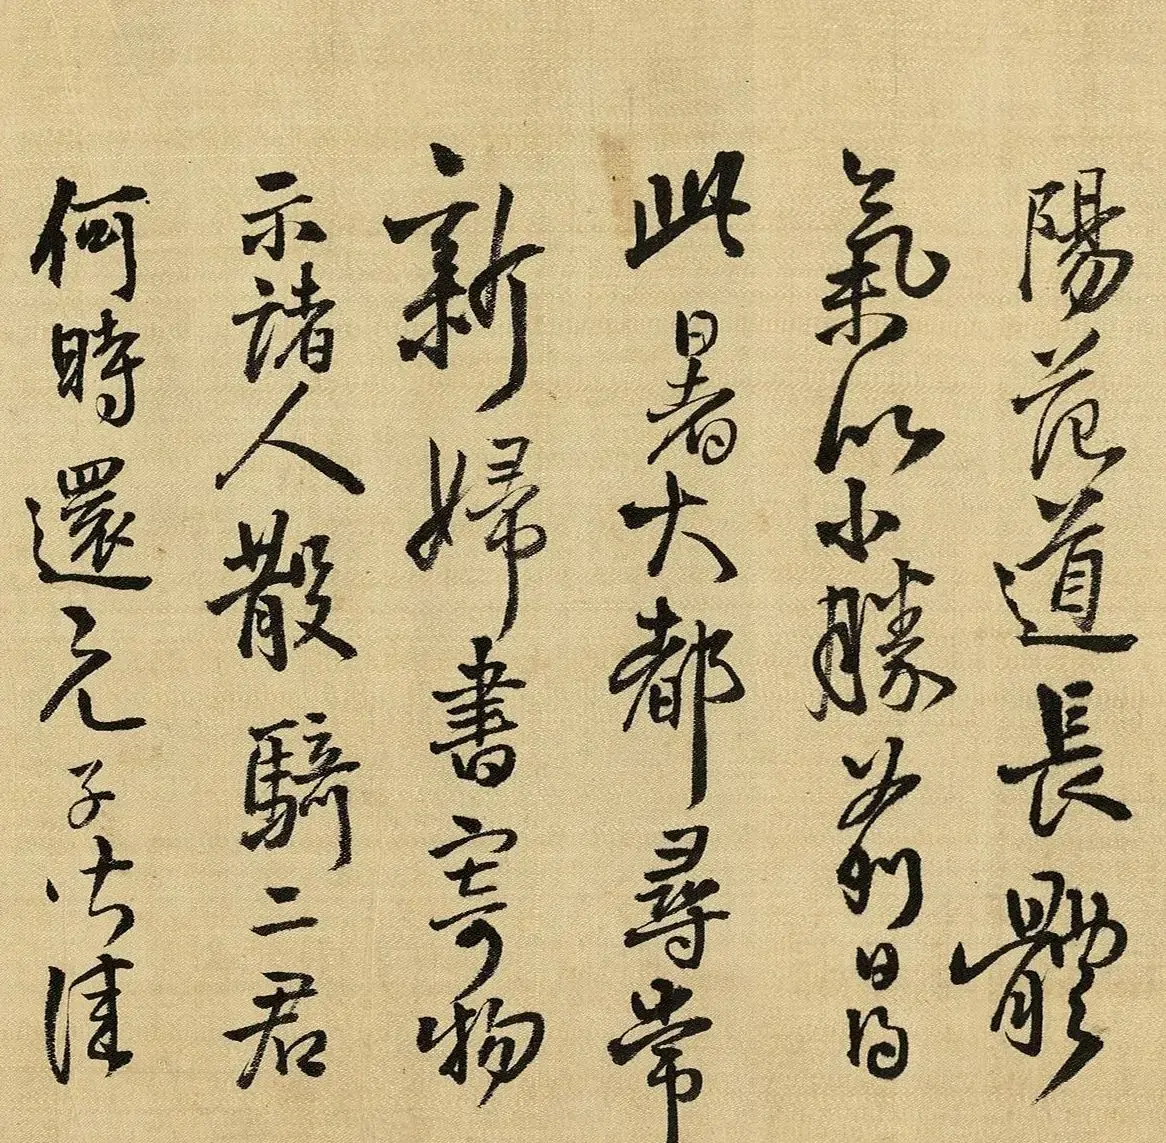 陽范道長體
氣以小勝前日得
此日暑大都尋常
新婦書寄物
示諸人散騎二君
何時還元子少佳